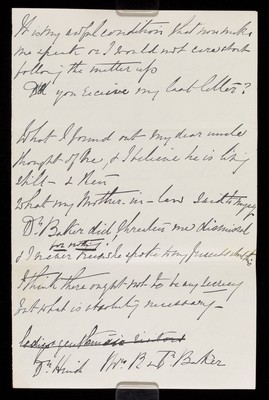 It is my awful condition that now makes
me speak or I would not care about
following the matter up
Did you receive my last letter?
What I found out my dear uncle
thought of me, & I believe he is living
still - &
what my Mother-in-law said to myself
Dr. Baker did threaten me dismissal
for nothing!
& I never heard he spoke to my
I think there ought not to be any secrecy
but what is absolutely necessary -
Dr Hood Mrs B & Dr Baker